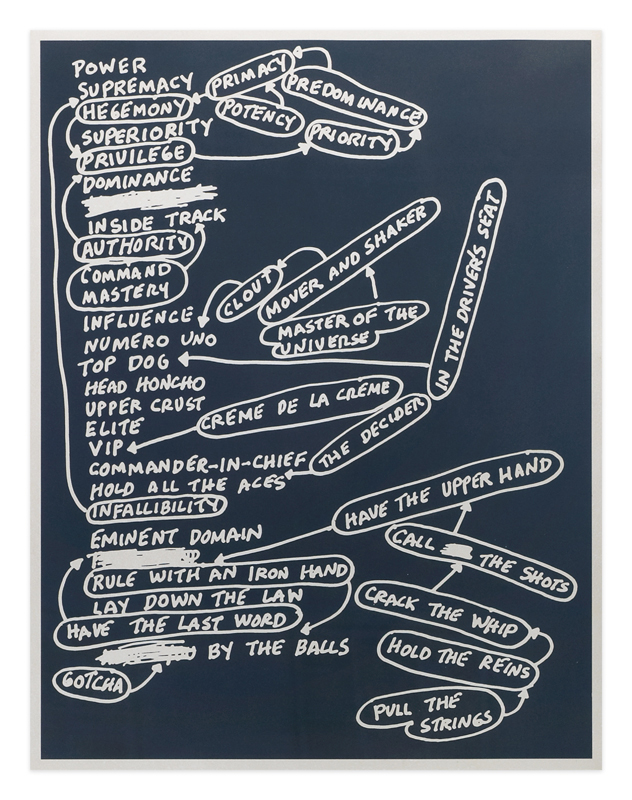 POWER
SUPREMACY
PRIMACY
PREDOMINANCE
HEGEMONY
POTENCY
SUPERIORITY
PRIORITY
PRIVILEGE
DOMINANCE
INSIDE TRACK
AUTHORITY
COMMAND
MASTERY
CLOUT
MOVER AND SHAKER
IN THE DRIVER'S SEAT
INFLUENCE
MASTER OF THE
UNIVERSE
NUMERO UNO
TOP DOG
HEAD HONCHO
UPPER CRUST
CRÈME DE LA CRÈME
ELITE
THE DECIDER
VIP
COMMANDER-IN-CHIEF
HOLD ALL THE ACES
INFALLIBILITY
HAVE THE UPPER HAND
EMINENT DOMAIN
CALL THE SHOTS
RULE WITH AN IRON HAND
LAY DOWN THE LAW
CRACK THE WHIP
HAVE THE LAST WORD
BY THE BALLS
HOLD THE REINS
GOTCHA
PULL THE
STRINGS